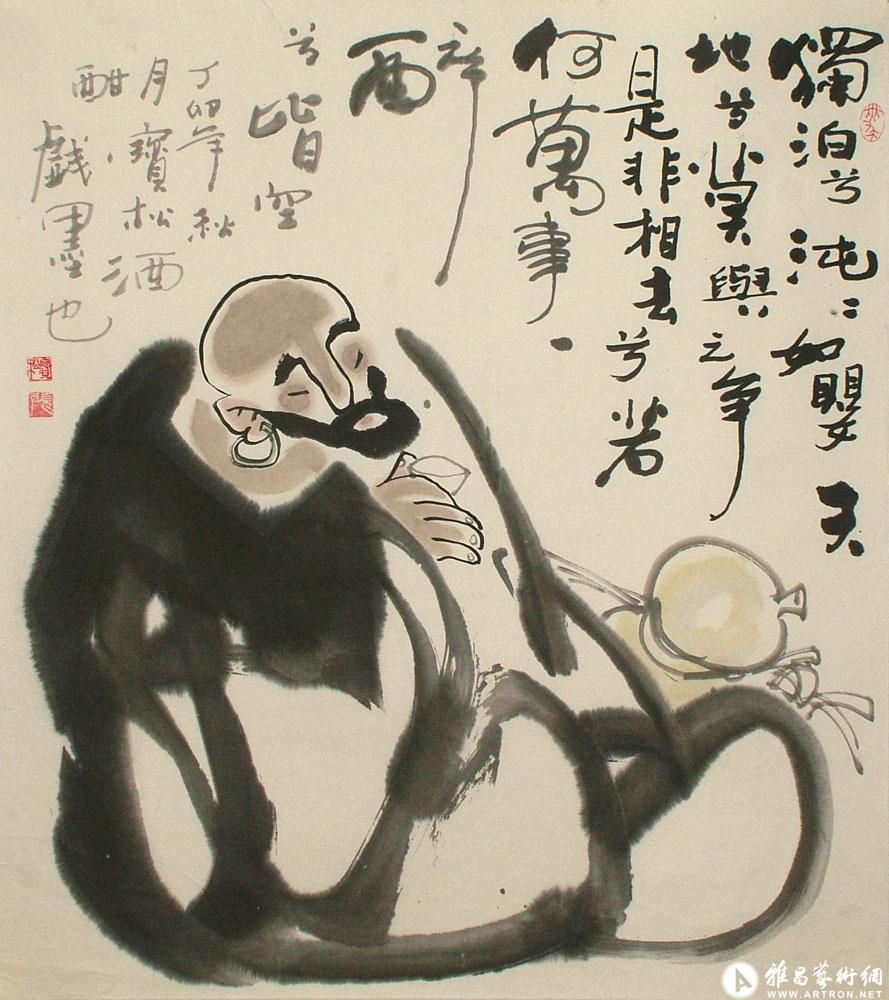 獨泊兮沌沌如嬰天
地兮莫與之爭
是非相去兮若
何萬事一
醉
兮皆空
丁卯年秋
月寶松酒
酣戲墨也
雅昌藝術網
WWW.ARTRON.NET